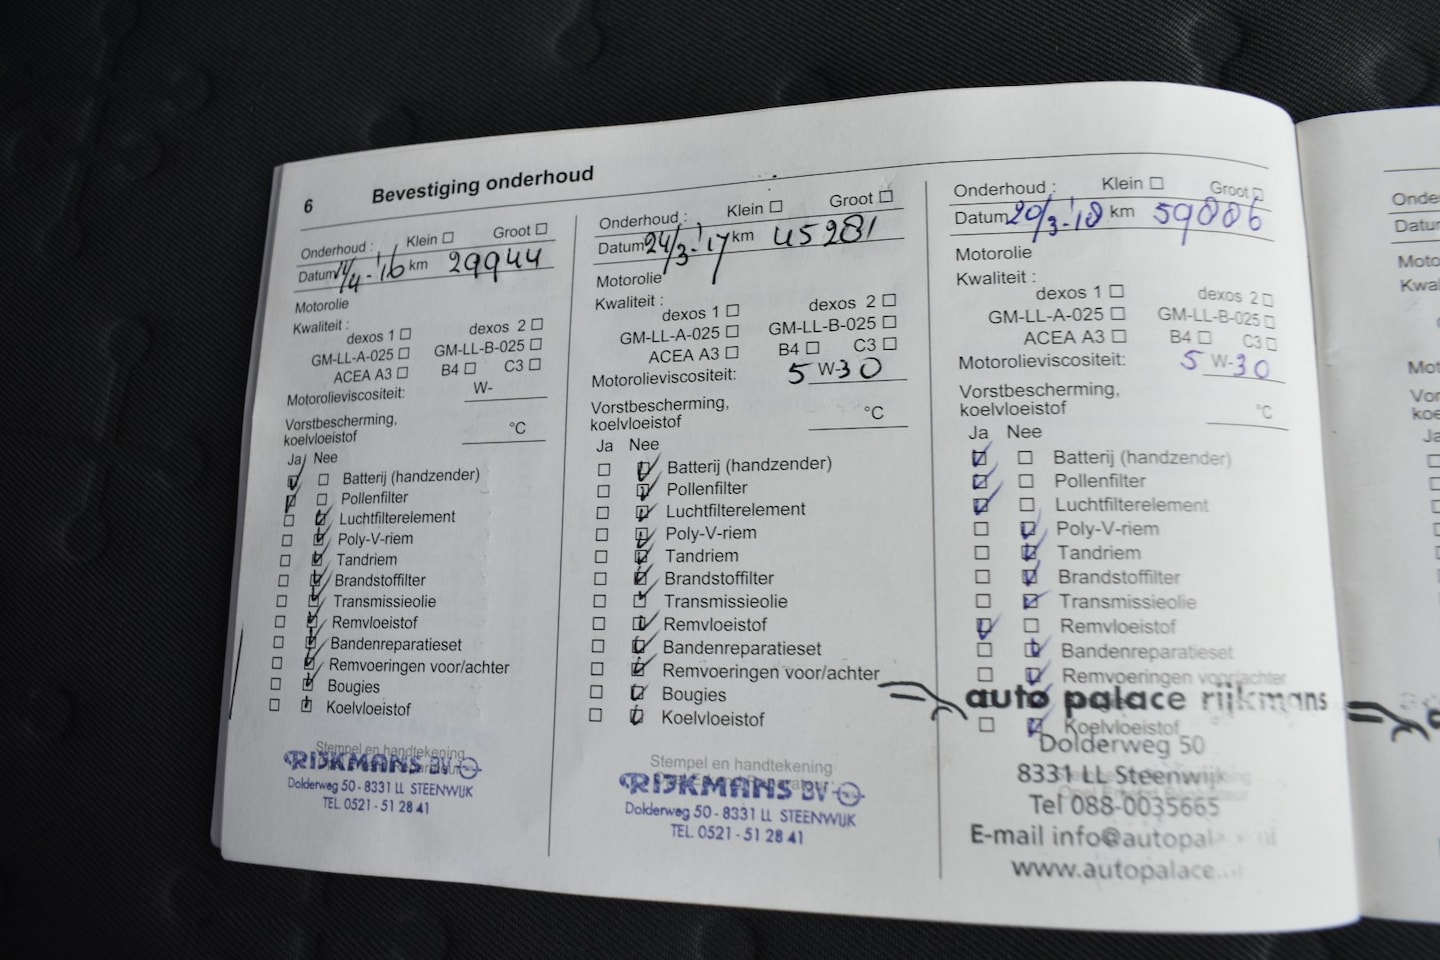 6 Bevestiging onderhoud
Onderhoud : Klein Groot
Datum 14/4-'16 km 29944
Motorolie
Kwaliteit :
dexos 1 dexos 2
GM-LL-A-025 GM-LL-B-025
ACEA A3 B4 C3
Motorolieviscositeit: W-
Vorstbescherming,
koelvloeistof °C
Ja Nee
Batterij (handzender)
Pollenfilter
Luchtfilterelement
Poly-V-riem
Tandriem
Brandstoffilter
Transmissieolie
Remvloeistof
Bandenreparatieset
Remvoeringen voor/achter
Bougies
Koelvloeistof
Stempel en handtekening
RIJKMANS BV
Dolderweg 50 - 8331 LL STEENWIJK
TEL. 0521 - 51 28 41
Onderhoud : Klein Groot
Datum 24/3-'17 km 45281
Motorolie
Kwaliteit :
dexos 1 dexos 2
GM-LL-A-025 GM-LL-B-025
ACEA A3 B4 C3
Motorolieviscositeit: 5 W-30
Vorstbescherming,
koelvloeistof °C
Ja Nee
Batterij (handzender)
Pollenfilter
Luchtfilterelement
Poly-V-riem
Tandriem
Brandstoffilter
Transmissieolie
Remvloeistof
Bandenreparatieset
Remvoeringen voor/achter
Bougies
Koelvloeistof
Stempel en handtekening
RIJKMANS BV
Dolderweg 50 - 8331 LL STEENWIJK
TEL. 0521 - 51 28 41
Onderhoud : Klein Groot
Datum 20/3-'18 km 59886
Motorolie
Kwaliteit :
dexos 1 dexos 2
GM-LL-A-025 GM-LL-B-025
ACEA A3 B4 C3
Motorolieviscositeit: 5 W-30
Vorstbescherming,
koelvloeistof °C
Ja Nee
Batterij (handzender)
Pollenfilter
Luchtfilterelement
Poly-V-riem
Tandriem
Brandstoffilter
Transmissieolie
Remvloeistof
Bandenreparatieset
Remvoeringen voor/achter
auto palace rijkmans
Koelvloeistof
Dolderweg 50
8331 LL Steenwijk
Tel 088-0035665
E-mail info@autopalace.nl
www.autopalace.nl